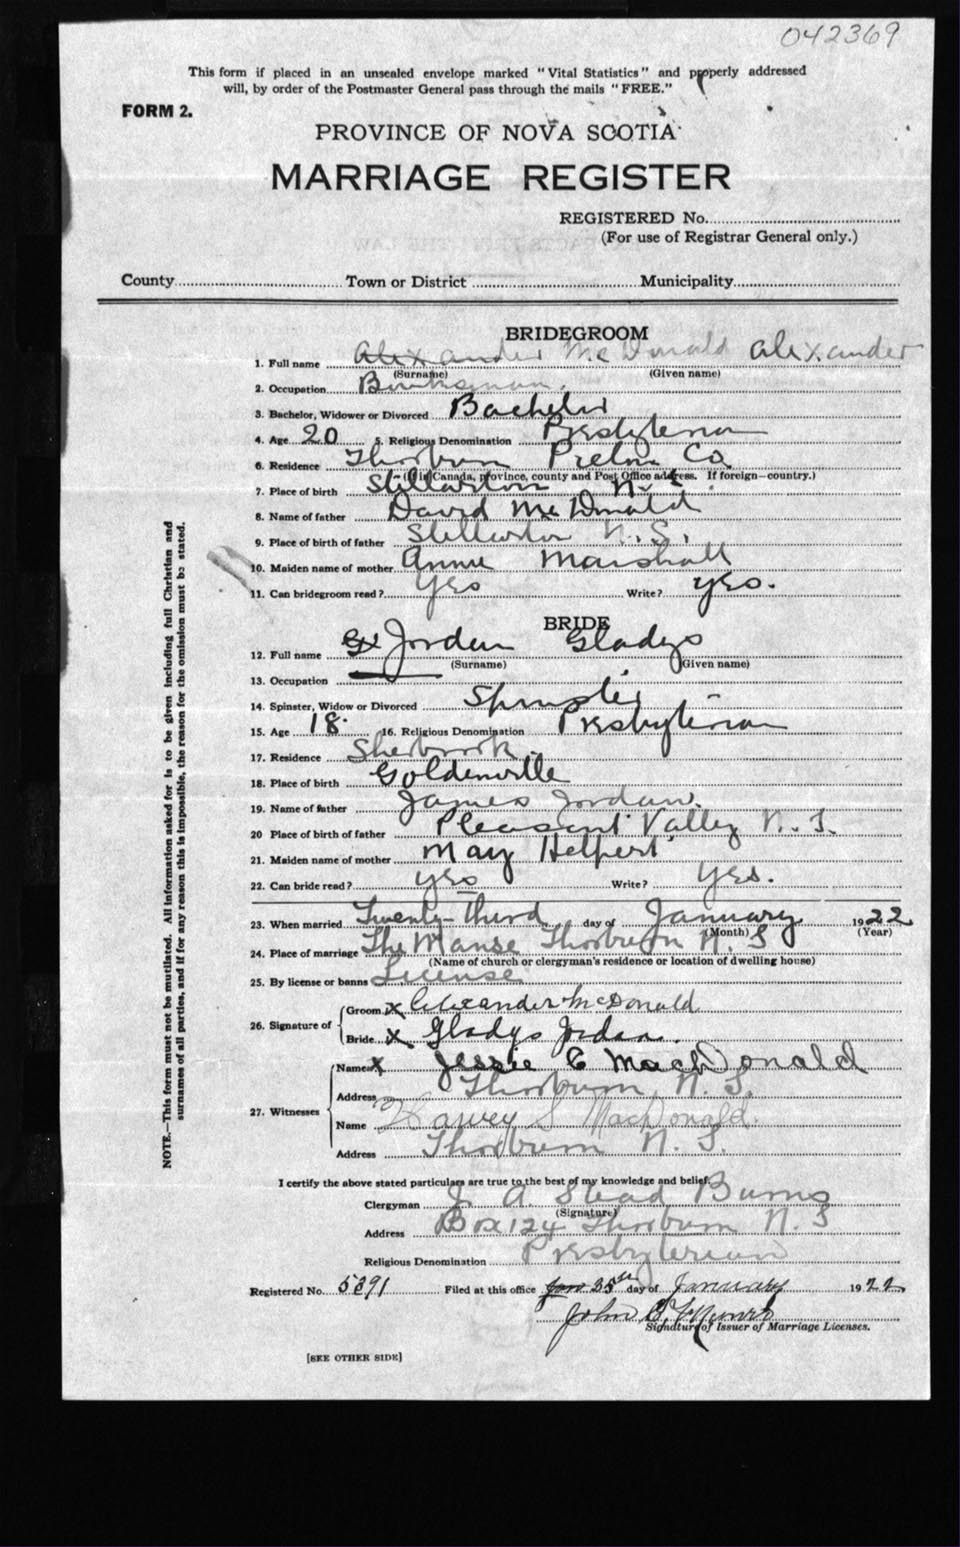 042369
This form if placed in an unsealed envelope marked "Vital Statistics" and properly addressed
will, by order of the Postmaster General pass through the mails "FREE."
FORM 2.
PROVINCE OF NOVA SCOTIA
MARRIAGE REGISTER
REGISTERED No.
(For use of Registrar General only.)
County Town or District Municipality
BRIDEGROOM
1. Full name Alexander McDonald Alexander
(Surname) (Given name)
2. Occupation
3. Bachelor, Widower or Divorced Bachelor
4. Age 20 5. Religious Denomination Presbyterian
6. Residence Thorburn Pictou Co
(If in Canada, province, county and Post Office address. If foreign—country.)
7. Place of birth Stellarton N.S
8. Name of father David McDonald
9. Place of birth of father Stellarton N.S.
10. Maiden name of mother Annie Marshall
11. Can bridegroom read? Yes Write? yes.
BRIDE
12. Full name Jordan Gladys
(Surname) (Given name)
13. Occupation
14. Spinster, Widow or Divorced Spinster
15. Age 18. 16. Religious Denomination Presbyterian
17. Residence Sherbrook
18. Place of birth Goldenville
19. Name of father James Jordan.
20 Place of birth of father Pleasant Valley N.S.
21. Maiden name of mother May Helpert
22. Can bride read? yes Write? yes.
23. When married Twenty-Third day of January 1922
(Month) (Year)
24. Place of marriage The Manse Thorburn N.S
(Name of church or clergyman's residence or location of dwelling house)
25. By license or banns License
26. Signature of Groom x Alexander McDonald
Bride x Gladys Jordan.
27. Witnesses Name x Jessie C MacDonald
Address Thorburn N.S.
Name Harvey S MacDonald.
Address Thorburn N.S.
I certify the above stated particulars are true to the best of my knowledge and belief.
Clergyman J. A. Stead Burns
(Signature)
Address Box 124 Thorburn N.S
Religious Denomination Presbyterian
Registered No. 5391 Filed at this office 25th day of January 1922
John
Signature of Issuer of Marriage Licenses.
[SEE OTHER SIDE]
NOTE.—This form must not be mutilated. All information asked for is to be given including full Christian and
surnames of all parties, and if for any reason this is impossible, the reason for the omission must be stated.